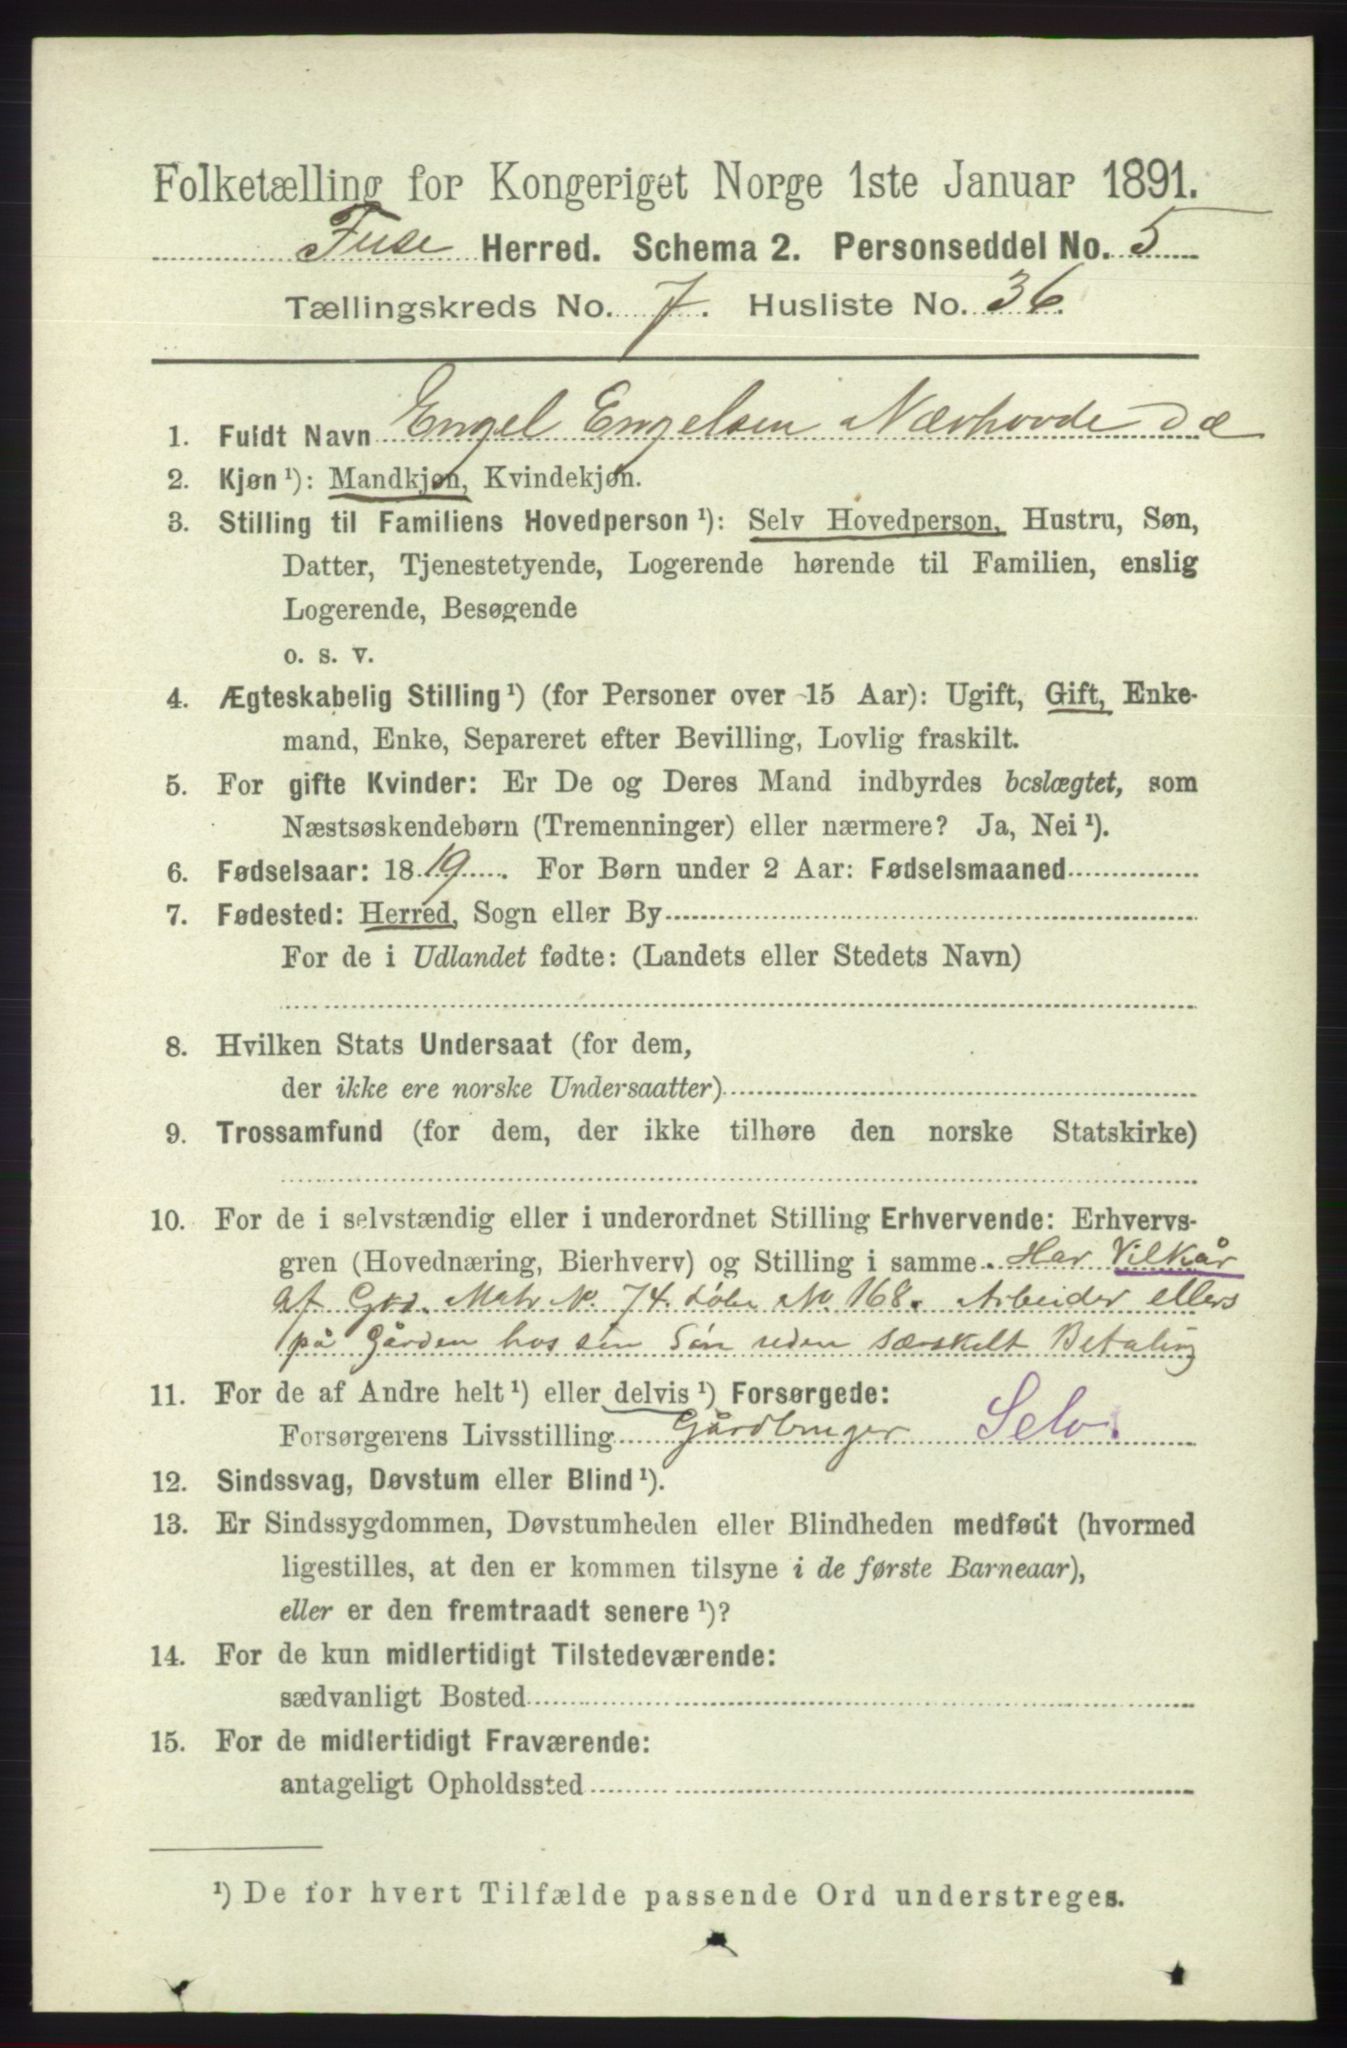 Folketælling for Kongeriget Norge 1ste Januar 1891.
Fuse Herred. Schema 2. Personseddel No. 5
Tællingskreds No. 7. Husliste No. 36.
1. Fuldt Navn Engel Engelsen Nævhovde
2. Kjøn ¹): Mandkjøn, Kvindekjøn.
3. Stilling til Familiens Hovedperson ¹): Selv Hovedperson, Hustru, Søn,
Datter, Tjenestetyende, Logerende hørende til Familien, enslig
Logerende, Besøgende
o. s. v.
4. Ægteskabelig Stilling ¹) (for Personer over 15 Aar): Ugift, Gift, Enke-
mand, Enke, Separeret efter Bevilling, Lovlig fraskilt.
5. For gifte Kvinder: Er De og Deres Mand indbyrdes beslægtet, som
Næstsøskendebørn (Tremenninger) eller nærmere? Ja, Nei ¹).
6. Fødselsaar: 1819. For Børn under 2 Aar: Fødselsmaaned
7. Fødested: Herred, Sogn eller By
For de i Udlandet fødte: (Landets eller Stedets Navn)
8. Hvilken Stats Undersaat (for dem,
der ikke ere norske Undersaatter)
9. Trossamfund (for dem, der ikke tilhøre den norske Statskirke)
10. For de i selvstændig eller i underordnet Stilling Erhvervende: Erhvervs-
gren (Hovednæring, Bierhverv) og Stilling i samme. Har Vilkår
af Grd. Matr N. 74. Löbe No. 168. Arbeider ellers
på Gården hos sin Sön uden særskelt Betaling
11. For de af Andre helt ¹) eller delvis ¹) Forsørgede:
Forsørgerens Livsstilling Gårdbruger Selv.
12. Sindssvag, Døvstum eller Blind ¹).
13. Er Sindssygdommen, Døvstumheden eller Blindheden medfødt (hvormed
ligestilles, at den er kommen tilsyne i de første Barneaar),
eller er den fremtraadt senere ¹)?
14. For de kun midlertidigt Tilstedeværende:
sædvanligt Bosted
15. For de midlertidigt Fraværende:
antageligt Opholdssted
¹) De for hvert Tilfælde passende Ord understreges.